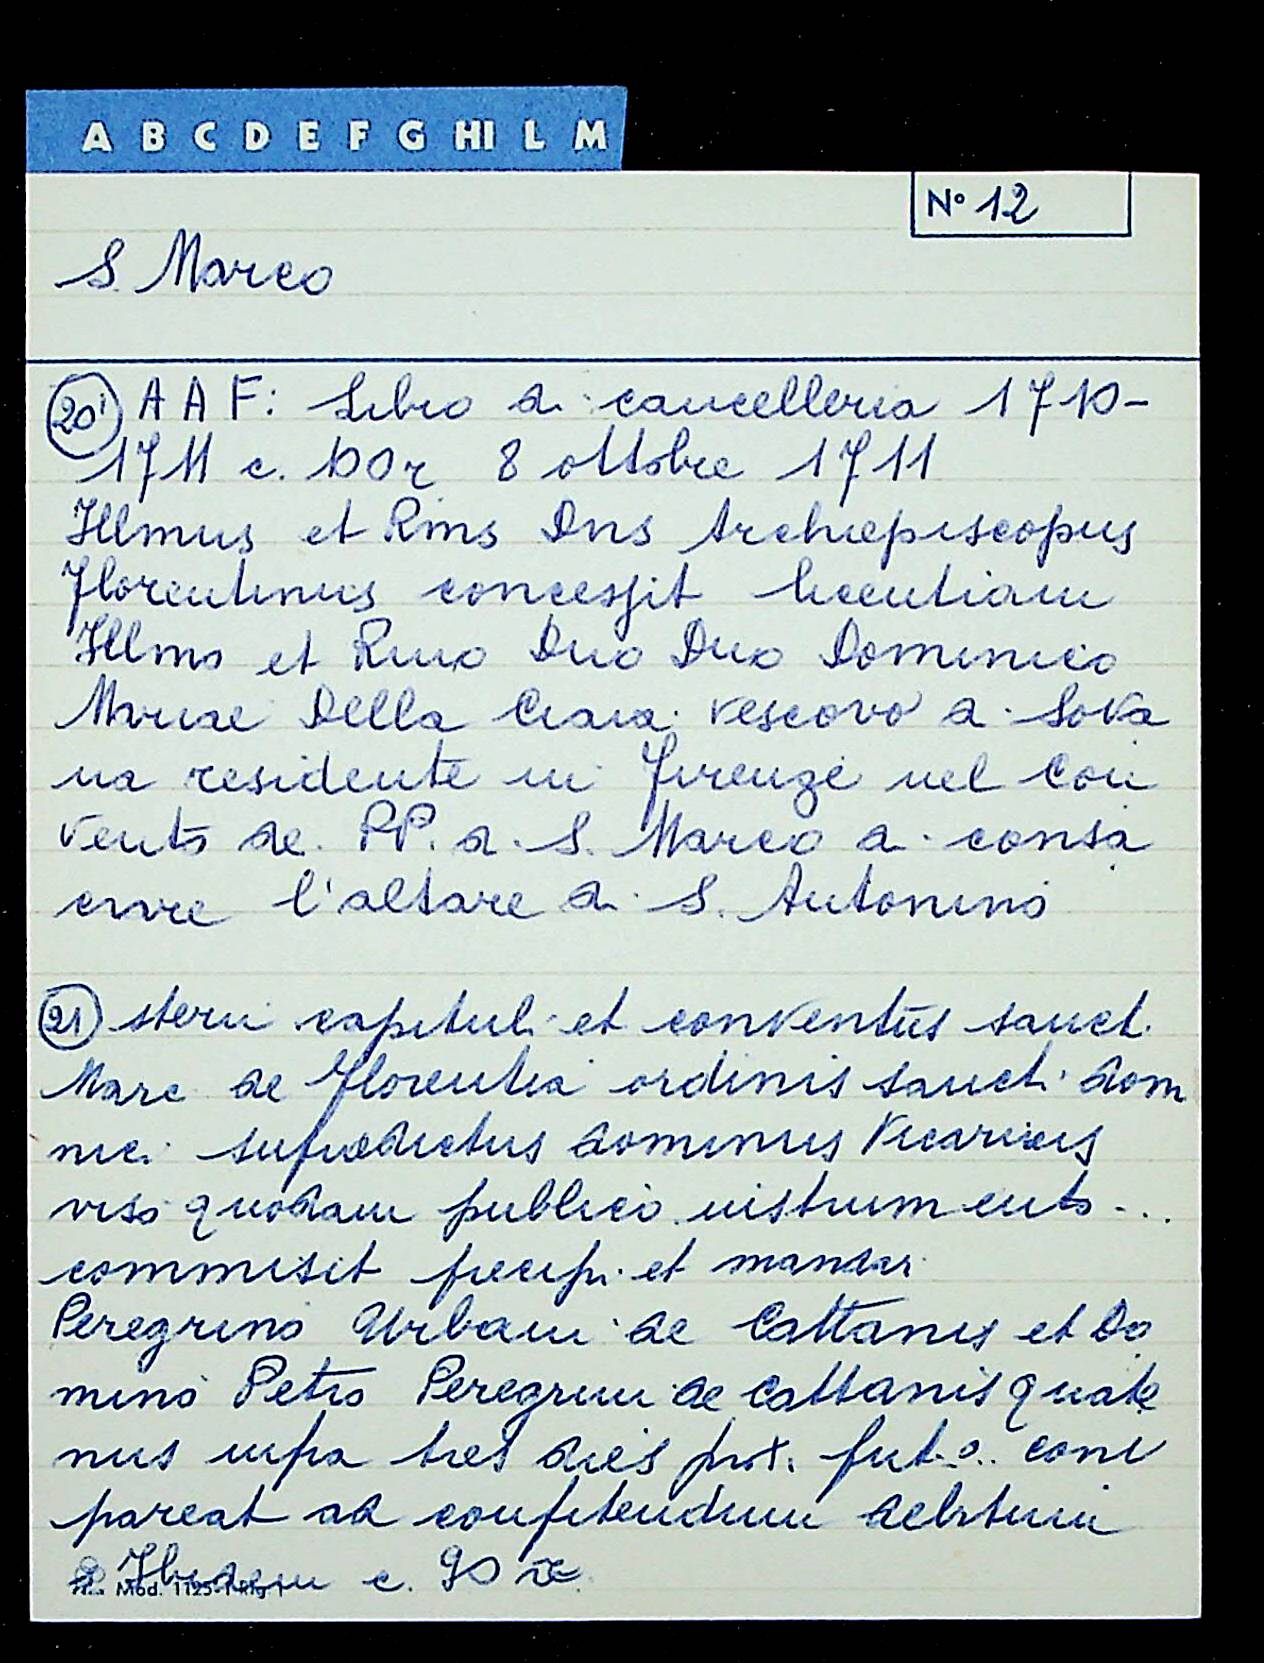 A B C D E F G HI L M
N° 12
S. Marco
20' A A F: Libro di cancelleria 1710-
1711 c. 100r 8 ottobre 1711
Illmus et Rms Dns Archiepiscopus
Florentinus concessit licentiam
Illmo et Rmo Dno Dno Dominico
Mariae Della Ciaia vescovo di Sova
na residente in Firenze nel con
vento dei PP. di S. Marco di consa
crare l'altare di S. Antonino
21 stern capituli et conventus sancti
Marc de Florentia ordinis sancti dom
nici supradictus dominus Vicarius
viso quodam publico instrumento...
commisit precipi et mandari
Peregrino Urbani de Cattanis et Do
mino Petro Peregrini de Cattanis quate
nus infra tres dies prox. fut.o. com
pareat ad confitendum debitum
Ibidem c. 90
Mod. 1125